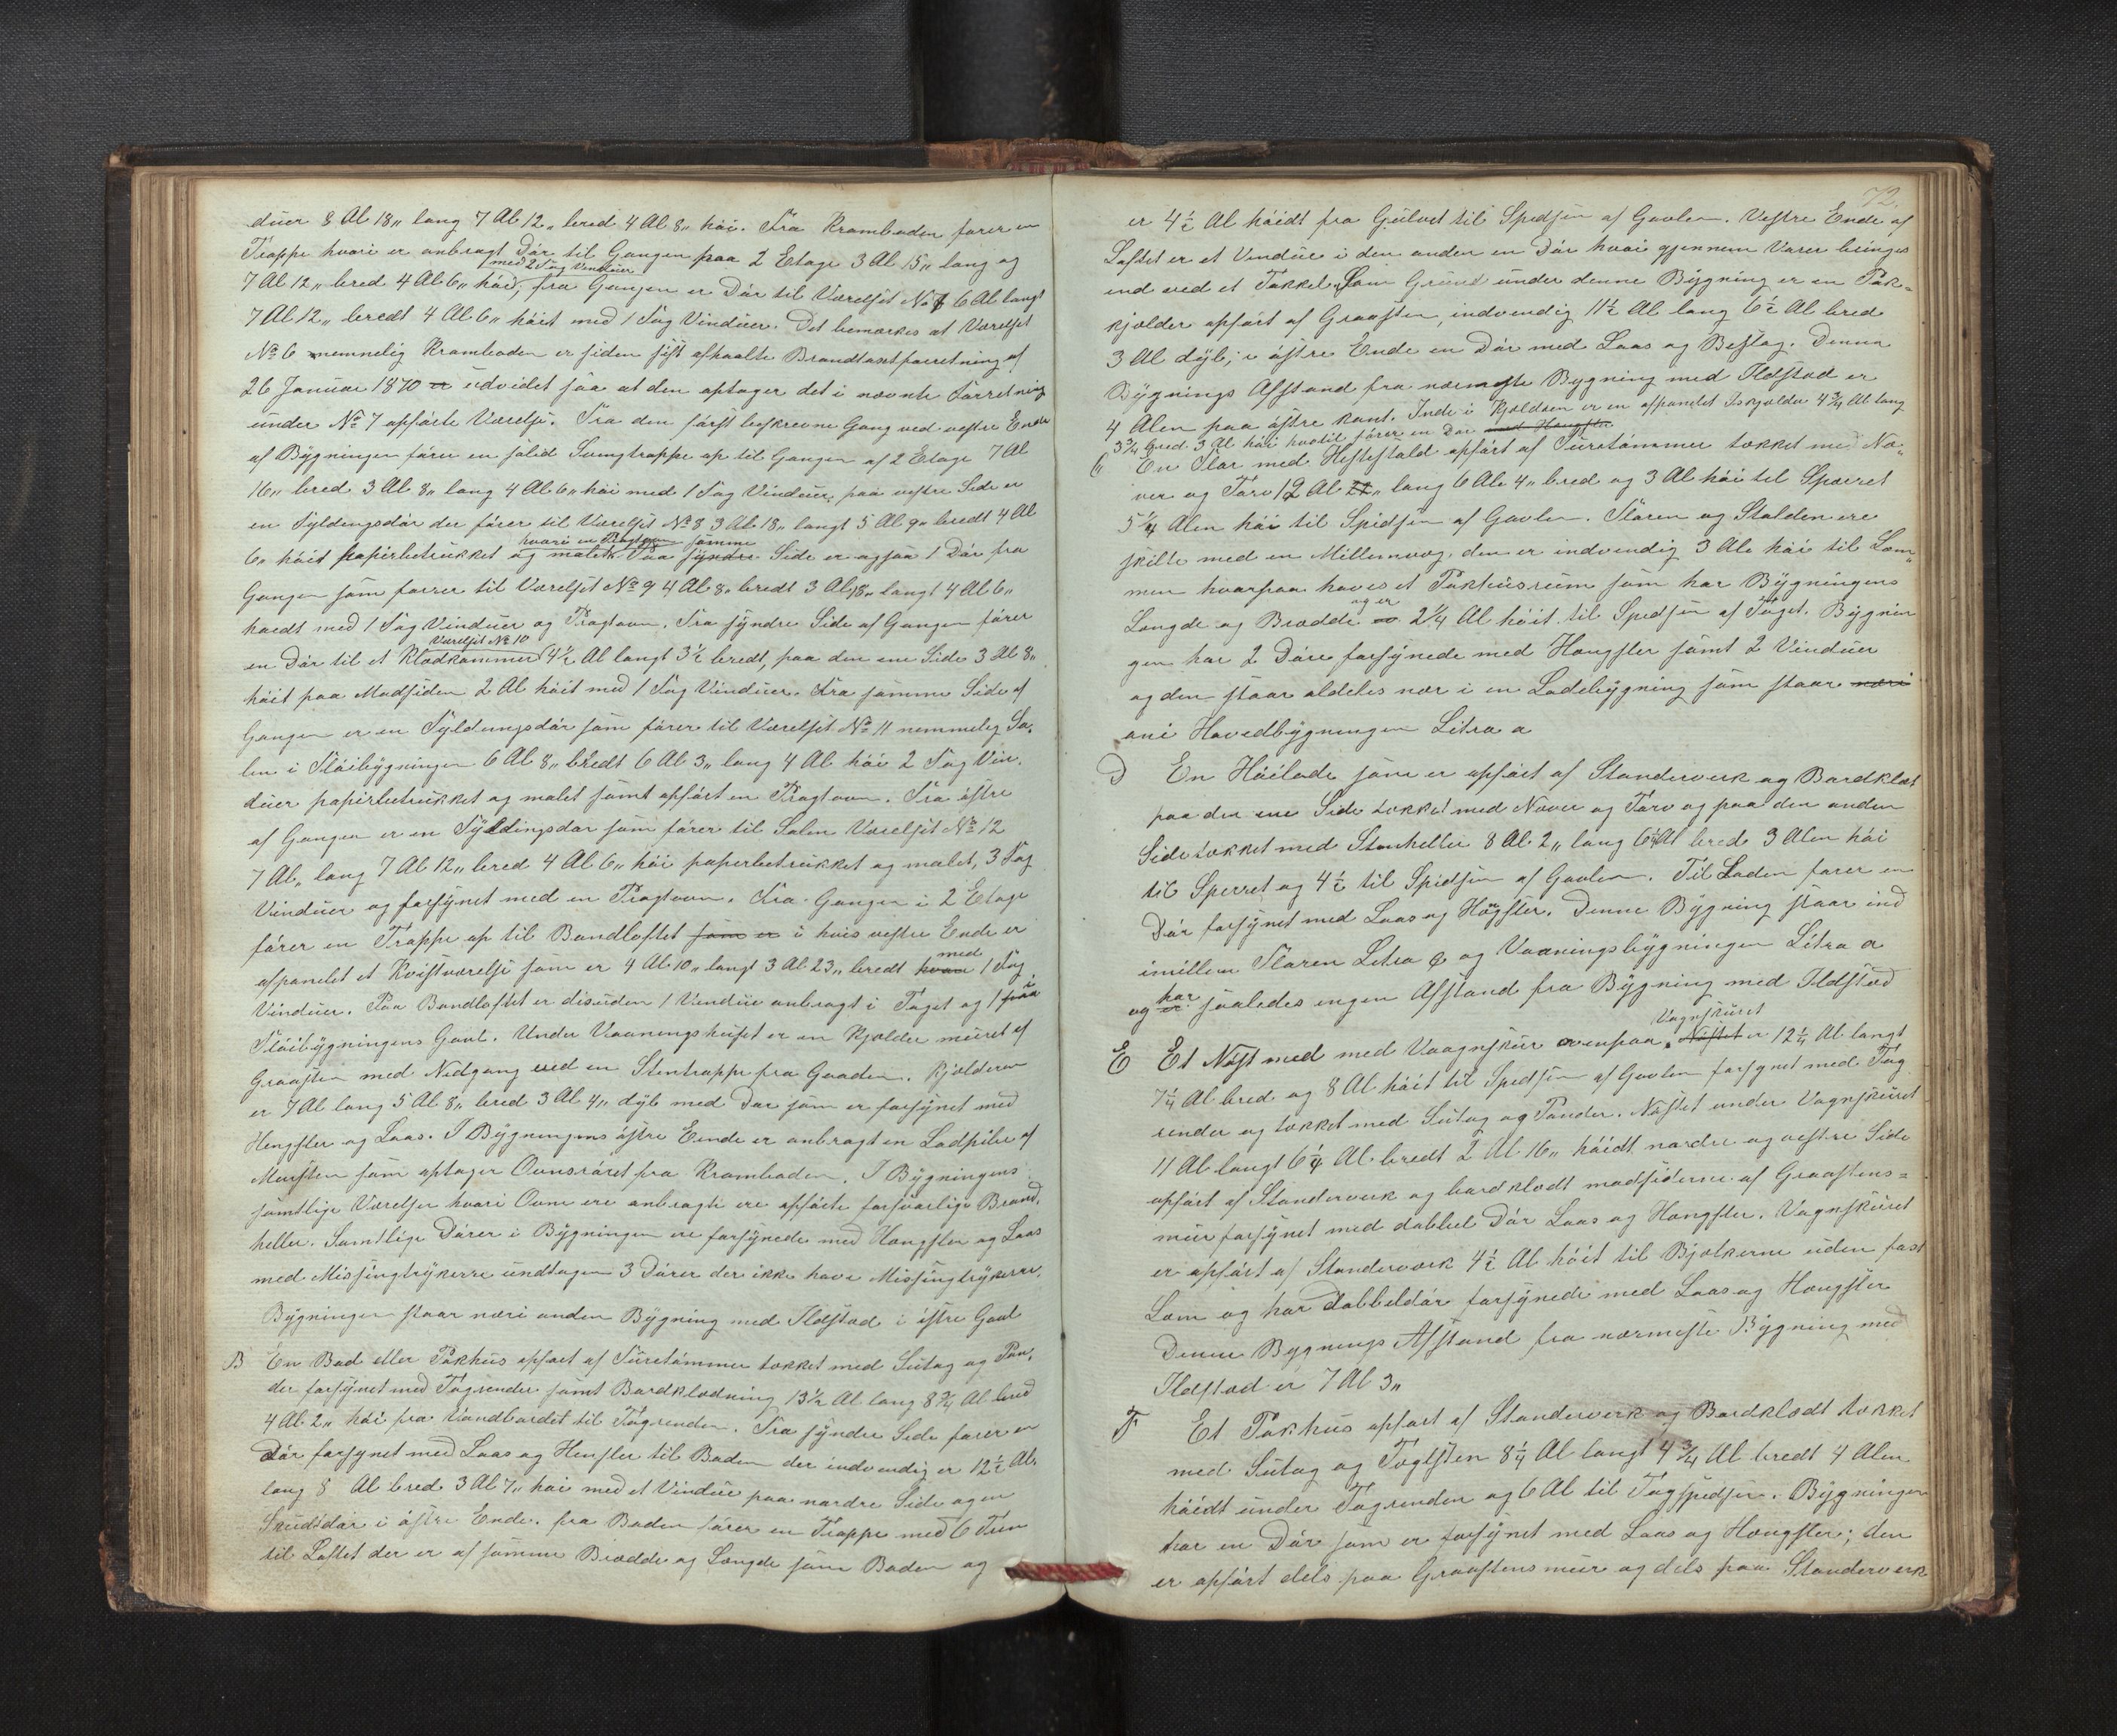 duer 8 Al 18„ lang 7 Al 12„ bred 4 Al 8„ höi. Fra Kramboden förer en
Trappe hvori er anbragt Dör til Gangen paa 2 Etage 3 Al 15„ lang og
med 2 Fag Vinduer
7 Al 12„ bred 4 Al 6„ höi, fra Gangen er Dör til Værelset No 7 6 Al langt
7 Al 12„ bredt 4 Al 6„ höit med 1 Fag Vinduer. Det bemærkes at Værelset
No 6 nemmelig Kramboden er siden sist afholdte Brandtaxtforretning af
26 Januar 1870 er udvidet saa at den optager det i nævnte Forretning
under No 7 opförte Værelse. Fra den först beskrevne Gang ved vestre Ende
af Bygningen förer en solid Svingtrappe op til Gangen af 2 Etage 7 Al
16„ bred 3 Al 8„ lang 4 Al 6„ höi med 1 Fag Vinduer, paa vestre Side er
en Fyldingsdör der förer til Værelset No 8 3 Al 18„ langt 5 Al 9„ bredt 4 Al
hvori en Pragtovn samme
6„ höit papirbetrukket og malet. Paa syndre Side er ogsaa 1 Dör fra
Gangen som förer til Værelset No 9 4 Al 8„ bredt 3 Al 18„ langt 4 Al 6„
höidt med 1 Fag Vinduer og Pragtovn. Fra syndre Side af Gangen förer
Værelset No 10
en Dör til et Klædkammer 4½ Al langt 3½ bredt, paa den ene Side 3 Al 8„
höit paa Modsiden 2 Al höit med 1 Fag Vinduer. Fra samme Side af
Gangen er en Fyldungsdör som förer til Værelset No 11 nemmelig Sa„
len i Flöibygningen 6 Al 8„ bredt 6 Al 3„ lang 4 Al höi 2 Fag Vin„
duer papirbetrukket og malet samt opfört en Pragtovn. Fra östre
af Gangen er en Fyldingsdör som förer til Salen Værelset No 12
7 Al„ lang 7 Al 12„ bred 4 Al 6„ höi papirbetrukket og malet, 3 Fag
Vinduer og forsynet med en Pragtovn. Fra Gangen i 2 Etage
förer en Trappe op til Bundloftet som er i hvis vestre Ende er
med
afpanelet et Kvistværelse som er 4 Al 10„ langt 3 Al 23„ bredt hvori 1 Fag
Vinduer. Paa Bundloftet er disuden 1 Vindue anbragt i Taget og 1 paa
Flöibygningens Gavl. Under Vaaningshuset er en Kjelder muret af
Graasten med Nedgang ved en Stentrappe fra Gaarden. Kjelderen
er 7 Al lang 5 Al 8„ bred 3 Al 4„ dyb med Dör som er forsynet med
Hengsler og Laas. I Bygningens östre Ende er anbragt en Ladpibe af
Mursten som optager Ovnsröret fra Kramboden. I Bygningens
samtlige Værelser hvori Ovne ere anbragte ere opförte forsvarlige Brand„
heller. Samtlige Dörer i Bygningen ere forsynede med Hængsler og Laas
med Missingtrykerre undtagen 3 Dörer der ikke have Missingtrykerre.
Bygningen staar næri anden Bygning med Ildstæd i östre Gavl
B En Bod eller Pakhus opfört af Furetömmer tækket med Sutag og Pan„
der forsynet med Tagrender samt Bordklædning 13½ Al lang 8¾ Al bred
4 Al 2„ höi fra Vandbordet til Tagrenden. Fra syndre Side förer en
Dör forsynet med Laas og Hensler til Boden der indvendig er 12½ Al.
lang 8 Al bred 3 Al 7„ höi med et Vindue paa nordre Side og en
Skuddör i östre Ende. fra Boden förer en Trappe med 6 Trin
til Loftet der er af samme Brædde og Længde som Boden og
72.
er 4½ Al höidt fra Gulvet til Spidsen af Gavlen. Vestre Ende af
Loftet er et Vindue i den anden en Dör hvori gjennem Varer bringes
ind ved et Takkel. Som Grund under denne Bygning er en Pak=
kjelder opfört af Graasten, indvendig 11½ Al lang 6½ Al bred
3 Al dyb; i östre Ende en Dör med Laas og Beslag. Denne
Bygnings Afstand fra nærmeste Bygning med Ildstæd er
4 Alen paa östre kant. Inde i Kjelderen er en afpanelet Iskjelder 4¾ Al lang
3¾ bred 3 Al höi hvortil förer en Dör med Hængsler.
C En Flor med Hestestald opfört af Furetömmer tækket med Næ„
ver og Törv 12 Al 22„ lang 6 Al 4„ bred og 3 Al höi til Sperret
5¼ Alen höi til Spidsen af Gavlen. Floren og Stalden ere
skilte med en Millemvæg, den er indvendig 3 Al höi til Lem„
men hvorpaa haves et Pakhusrum som har Bygningens
og er
Længde og Brædde er 2¼ Al höit til Spidsen af Taget. Bygnin
gen har 2 Döre forsynede med Hængsler samt 2 Vinduer
og den staar aldeles nær i en Ladebygning som staar næri
ani Hovedbygningen Litra a
D En Höilade som er opfört af Standerverk og Bordklæt
paa den ene Side tækket med Never og Törv og paa den anden
Side tækket med Stenheller 8 Al 2„ lang 6¼ Al bred 3 Alen höi
til Sperret og 4½ til Spidsen af Gavlen. Til Laden förer en
Dör forsynet med Laas og Hængsler. Denne Bygning staar ind
imillem Floren Litra C og Vaaningsbygningen Litra a
har
og er saaledes ingen Afstand fra Bygning med Ildstæd
Vognskuret
E Et Nöst med med Vaagnskur ovenpaa. Nöstet er 12¼ Al langt
7¼ Al bred og 8 Al höit til Spidsen af Gavlen forsynet med Tag
render og tækket med Sutag og Pander. Nöstet under Vognskuret
11 Al langt 6¼ Al bredt 2 Al 16„ höidt, nordre og vestre Side
opfört af Standerverk og bordklædt modsiderne af Graastens=
mur forsynet med dobbel Dör Laas og Hængsler. Vognskuret
er opfört af Standerværk 4½ Al höit til Bjelkerne uden fast
Lem og har dobbeldör forsynede med Laas og Hængsler
Denne Bygnings Afstand fra nærmeste Bygning med
Ildstæd er 7 Al 3„
F Et Pakhus opfört af Standerverk og Bordklædt tækket
med Sutag og Taglsten 8¼ Al langt 4¾ Al bredt 4 Alen
höidt under Tagrenden og 6 Al til Tagspidsen. Bygningen
har en Dör som er forsynet med Laas og Hængsler; den
er opfört dels paa Graastens mur og dels paa Standerverk